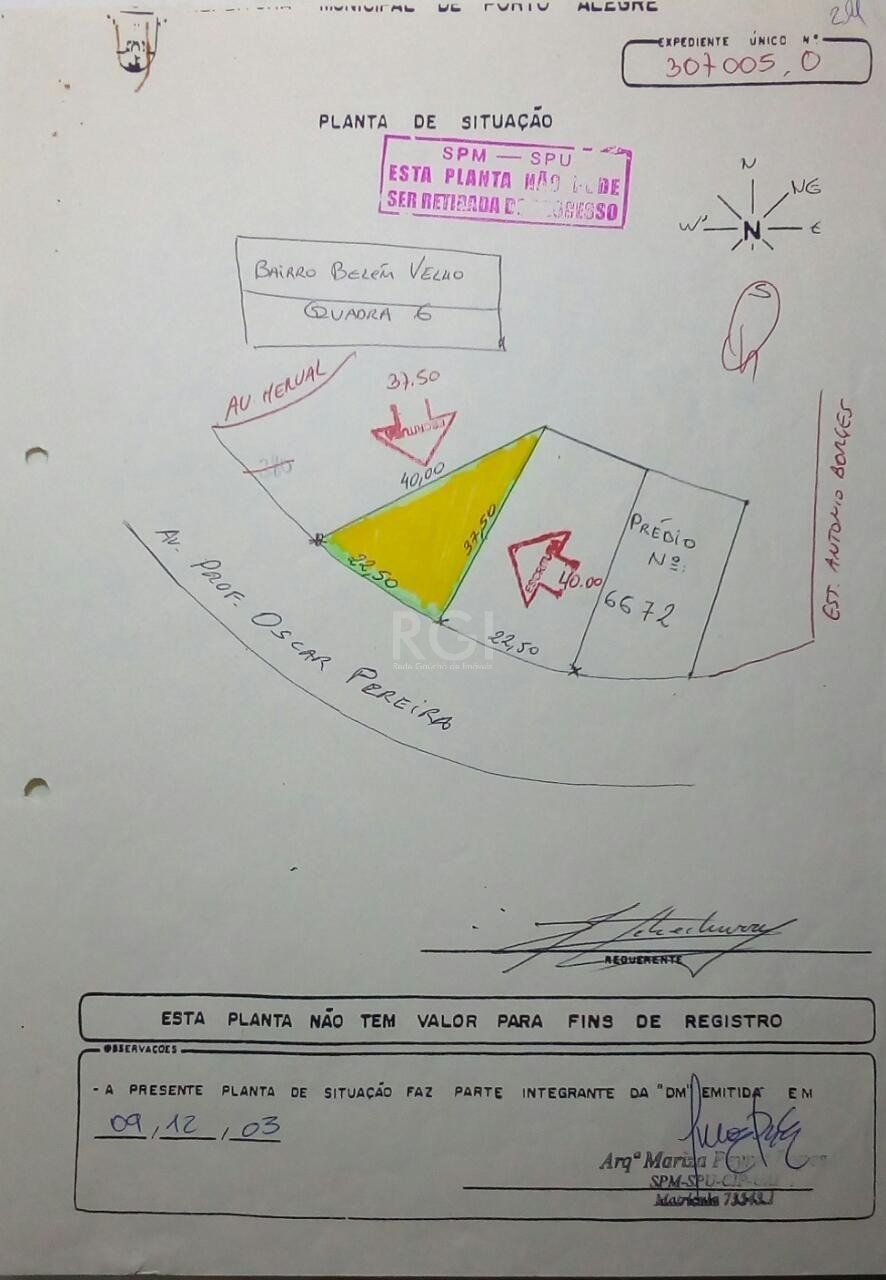 MUNICIPAL DE PORTO ALEGRE
EXPEDIENTE ÚNICO Nº
307005,0
PLANTA DE SITUAÇÃO
SPM — SPU
ESTA PLANTA NÃO PODE
SER RETIRADA DO PROCESSO
N
NE
W
N
E
S
BAIRRO BELÉM VELHO
QUADRA 6
AV HERVAL
37.50
ESCRITURA
40,00
37,50
22,50
ESCRITURA
40.00
22,50
PRÉDIO
Nº:
6672
EST. ANTONIO BORGES
AV. PROF. OSCAR PEREIRA
RGI
Rede Gaúcha de Imóveis
REQUERENTE
ESTA PLANTA NÃO TEM VALOR PARA FINS DE REGISTRO
OBSERVACOES
- A PRESENTE PLANTA DE SITUAÇÃO FAZ PARTE INTEGRANTE DA "DM" EMITIDA EM
09,12,03
Arqª Mariza
SPM-SPU-CIP
Matrícula